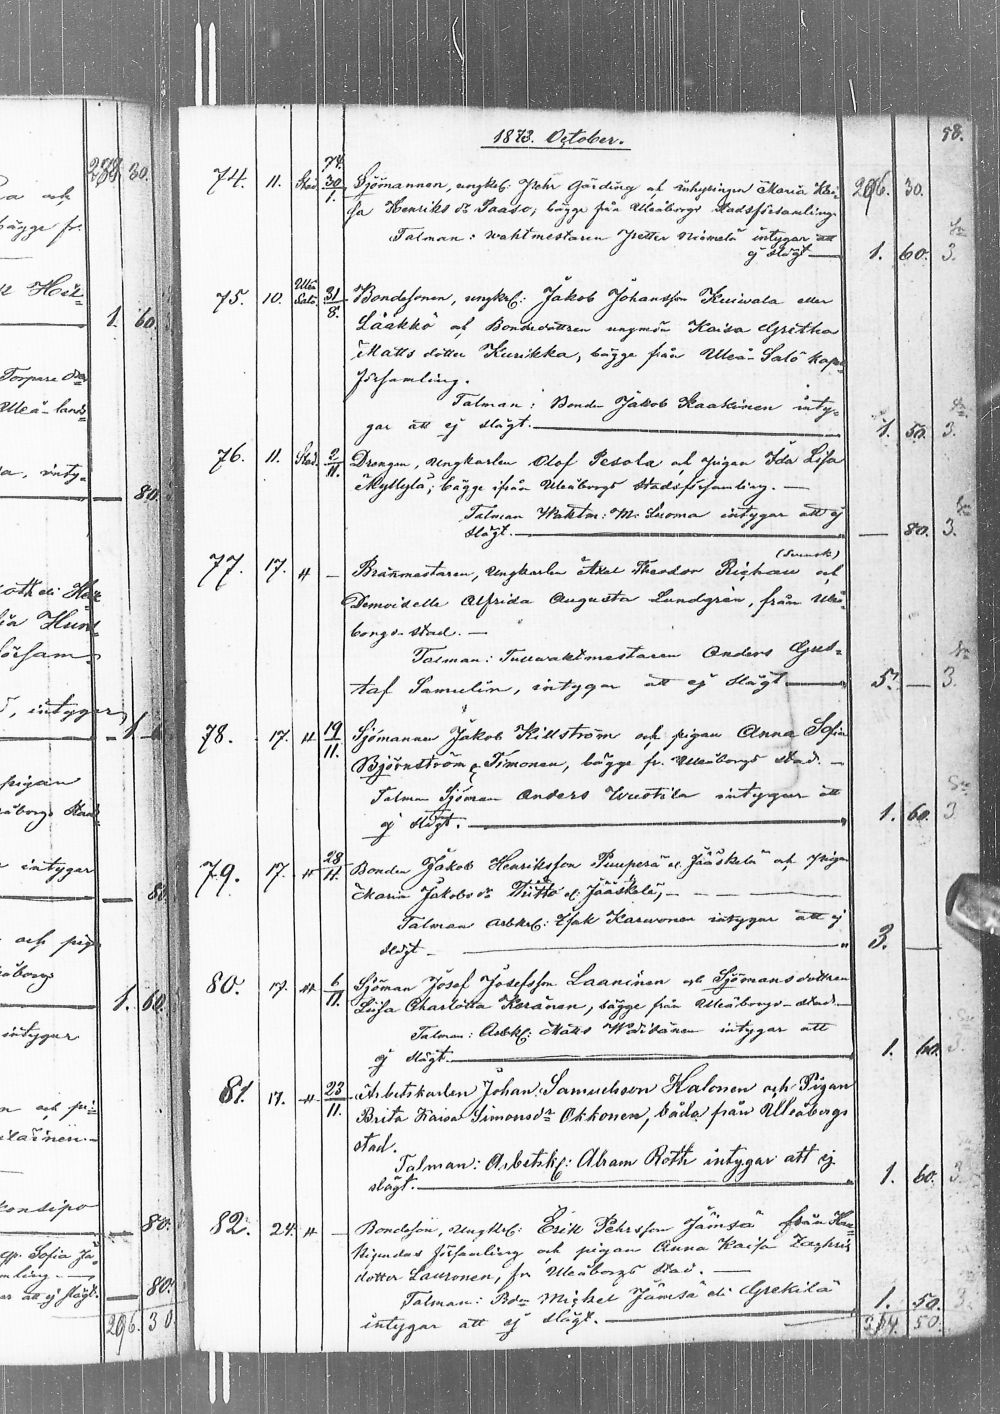 1873. October.
58.
74. 11. Stad 74. 30/1. Sjömannen, ungkrl: Pehr Gärding och inhysingen Maria Lovi-
sa Henriks dr Paaso, bägge från Uleåborgs stadsförsamling. 296. 30.
Talman: waktmestaren Petter Niemelä intygar att
ej slägt 1. 60. 3.
75. 10. Uleå Salo. 31/8. Bondesonen, ungkrl: Jakob Johansson Keiwala eller
Lääkkö och Bondedottren ungmön Kaisa Gretha
Matts dotter Kurikka, bägge från Uleå-Salo kapl
församling.
Talman: Bonden Jakob Kaakinen inty-
gar att ej slägt. 1. 50. 3.
76. 11. Stad. 2/11. Drengen, Ungkarlen Olof Pesola och pigan Ida Lisa
Myllylä; bägge ifrån Uleåborgs stadsförsamling.
Talman Waktm: M. Luoma intygar att ej
slägt. — 80. 3.
77. 17. " — (svensk)
Brännmestaren, Ungkarlen Axel Theodor Righau och
Demoiselle Alfrida Augusta Lundgrén, från Uleå-
borgs stad. —
Talman: Tullwaktmestaren Anders Gus-
taf Samulin, intygar att ej slägt 5. — 3.
78. 17. " 19/11. Sjömannen Jakob Killström och pigan Anna Sofia
Björnström e. Timonen, bägge fr. Uleåborgs stad. —
Talman Sjöman Anders Wuotila intygar att
ej slägt. 1. 60. 3
79. 17. " 28/11. Bonden Jakob Henriksson Puuperä el. Jääskelä och pigan
Maria Jakobs dr Tiitto el. Jääskelä, —
Talman Arbkrl: Isak Karwonen intygar att ej
slägt — 3. —
80. 17. " 6/11. Sjöman Josef Josefsson Laaninen och Sjömansdottren
Luisa Charlotta Keränen, bägge från Uleåborgs-stad. —
Talman: Arbkl: Matts Wäikänen intygar att
ej slägt. 1. 60. 3.
81. 17. " 23/11. Arbetskarlen Johan Samuelsson Halonen och Pigan
Brita Kaisa Simonsdr Okkonen, båda från Uleåborgs
stad.
Talman: Arbetskl: Abram Roth intygar att ej
slägt. 1. 60. 3.
82. 24. " — Bondeson, Ungkrl: Erik Pehrsson Jämsä från Hau-
kipudas församling och pigan Anna Kaisa Zachris
dotter Lauronen, fr Uleåborgs stad. —
Talman: Bdn Michel Jämsä eli Grekilä
intygar att ej slägt. 1. 50. 3.
314. 50.
30.
och
bägge fr.
1. 60.
Torpare
Uleå-lands-
80.
församl-
, intygar
pigan
intygar
80.
och pig
1. 60.
intygar
80.
Sofia
att ej slägt. 80.
296. 30.